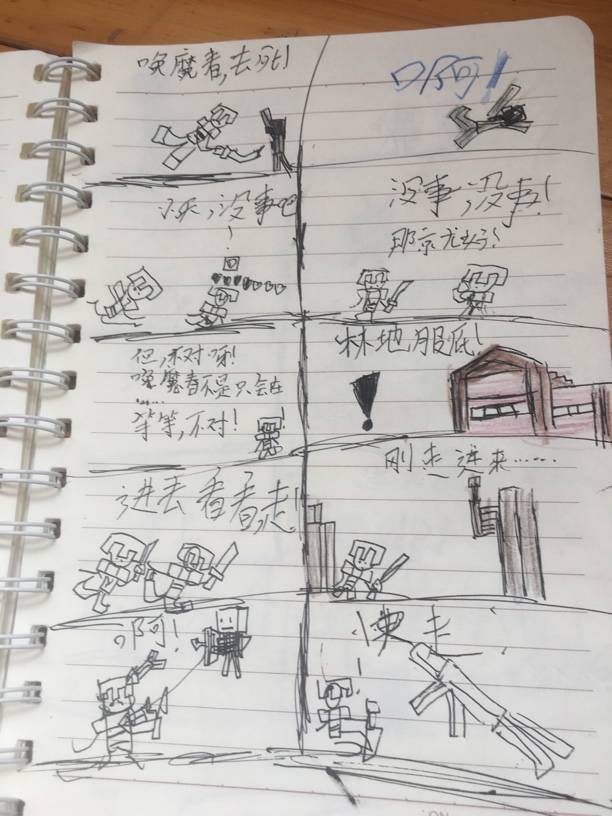 唤魔者,去死!
啊!
小沃,没事吧
没事,没事!
那就好!
但,不对呀!
唤魔者不是只会在
……
等等,不对!
林地服底!
进去看看,走!
刚走进来……
啊!
快走